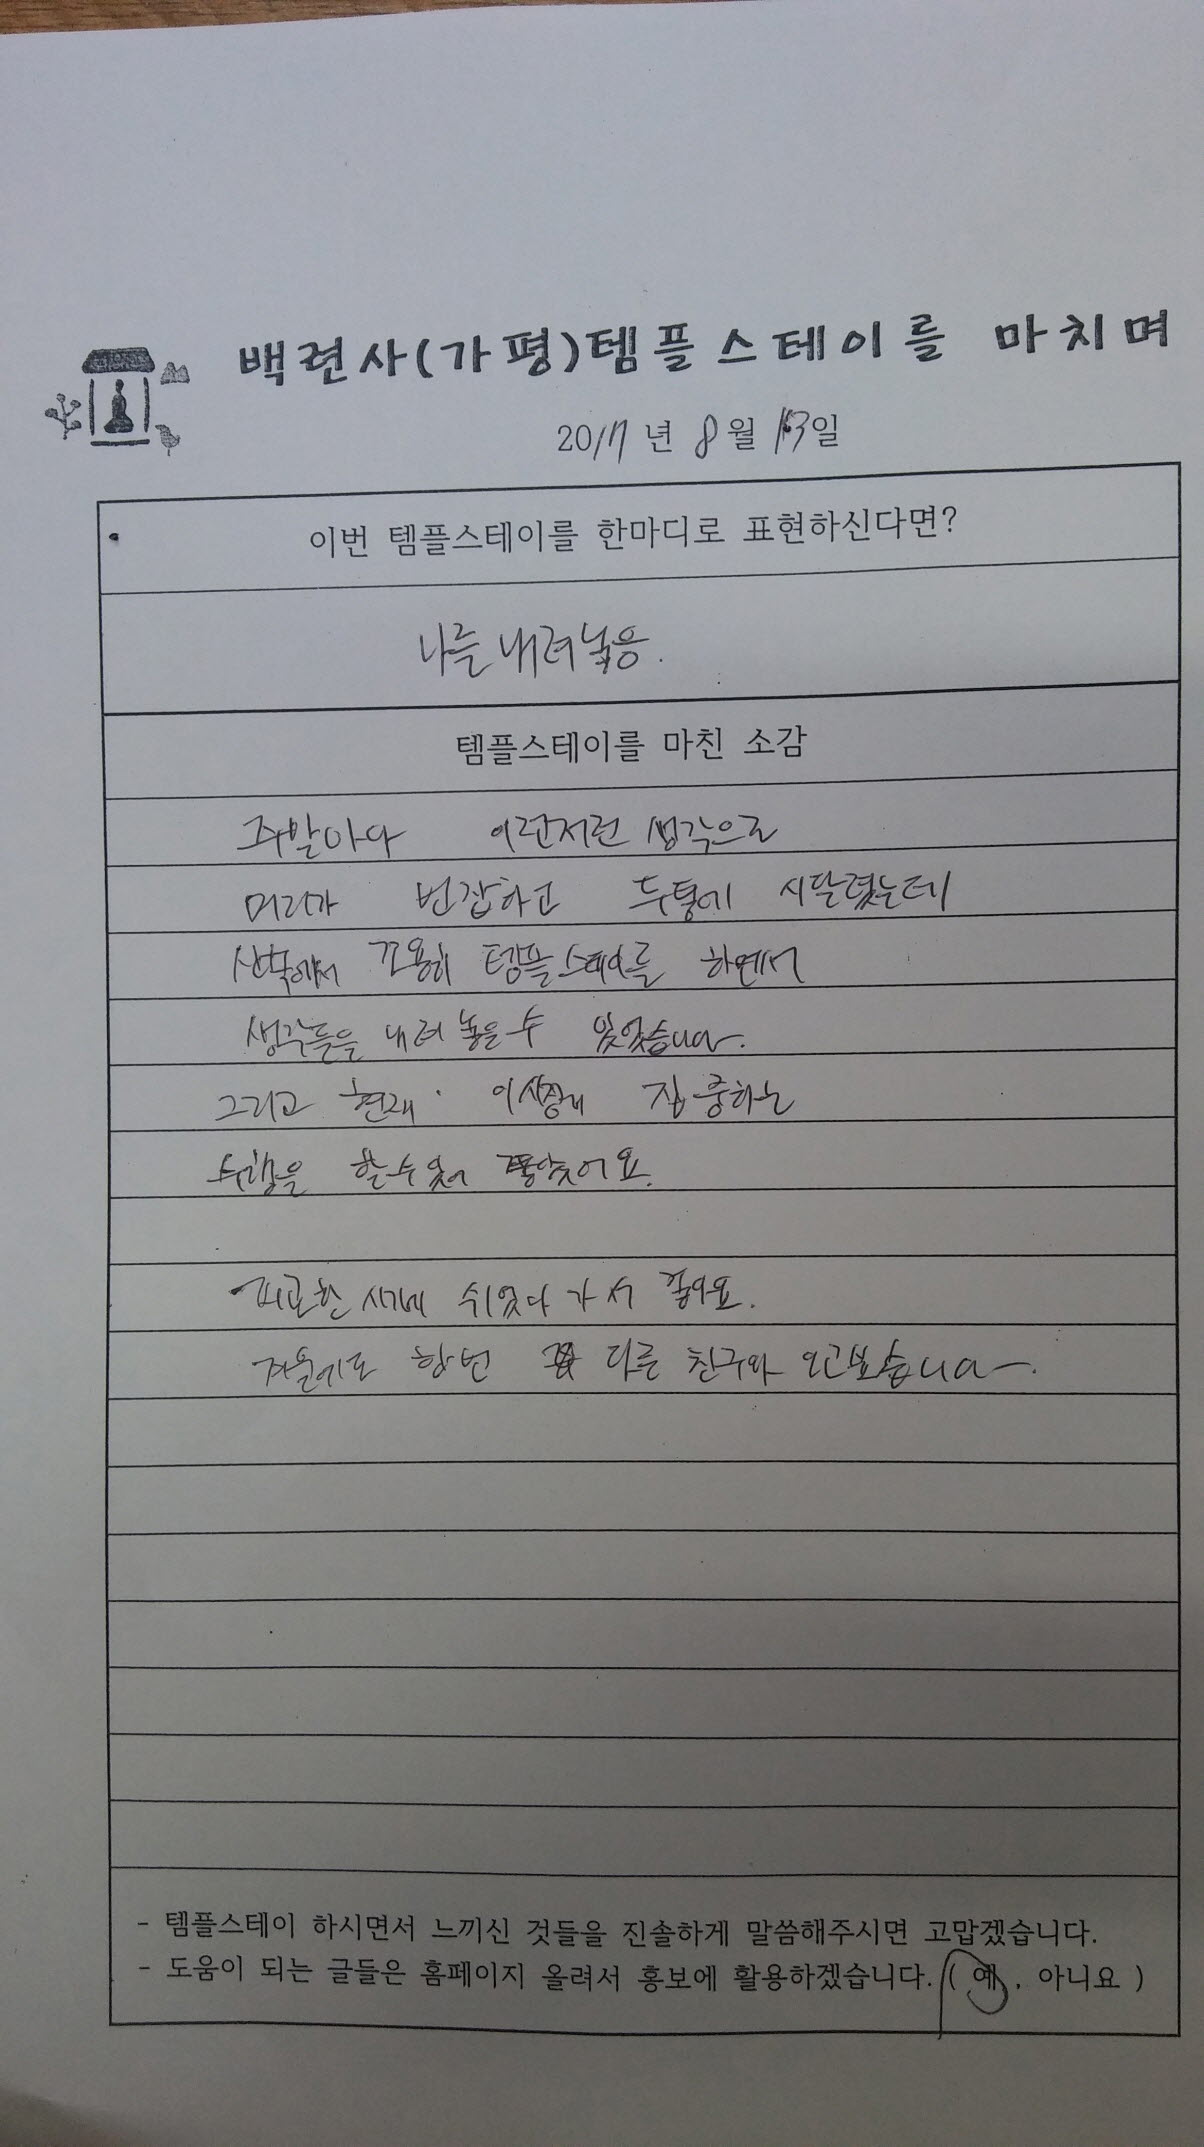 백련사(가평)템플스테이를 마치며
2017년 8월 13일
이번 템플스테이를 한마디로 표현하신다면?
나를 내려놓음.
템플스테이를 마친 소감
주말마다 이런저런 생각으로
머리가 번잡하고 두통에 시달렸는데
산속에서 조용히 템플스테이를 하면서
생각들을 내려 놓을 수 있었습니다.
그리고 현재 집중하는
수행을 할 수 있어 좋았어요.
피로한 시기에 쉬었다 가서 좋아요.
겨울에도 한번 다른 친구와 오고봅습니다.
- 템플스테이 하시면서 느끼신 것들을 진솔하게 말씀해주시면 고맙겠습니다.
- 도움이 되는 글들은 홈페이지 올려서 홍보에 활용하겠습니다. ( 예 , 아니요 )